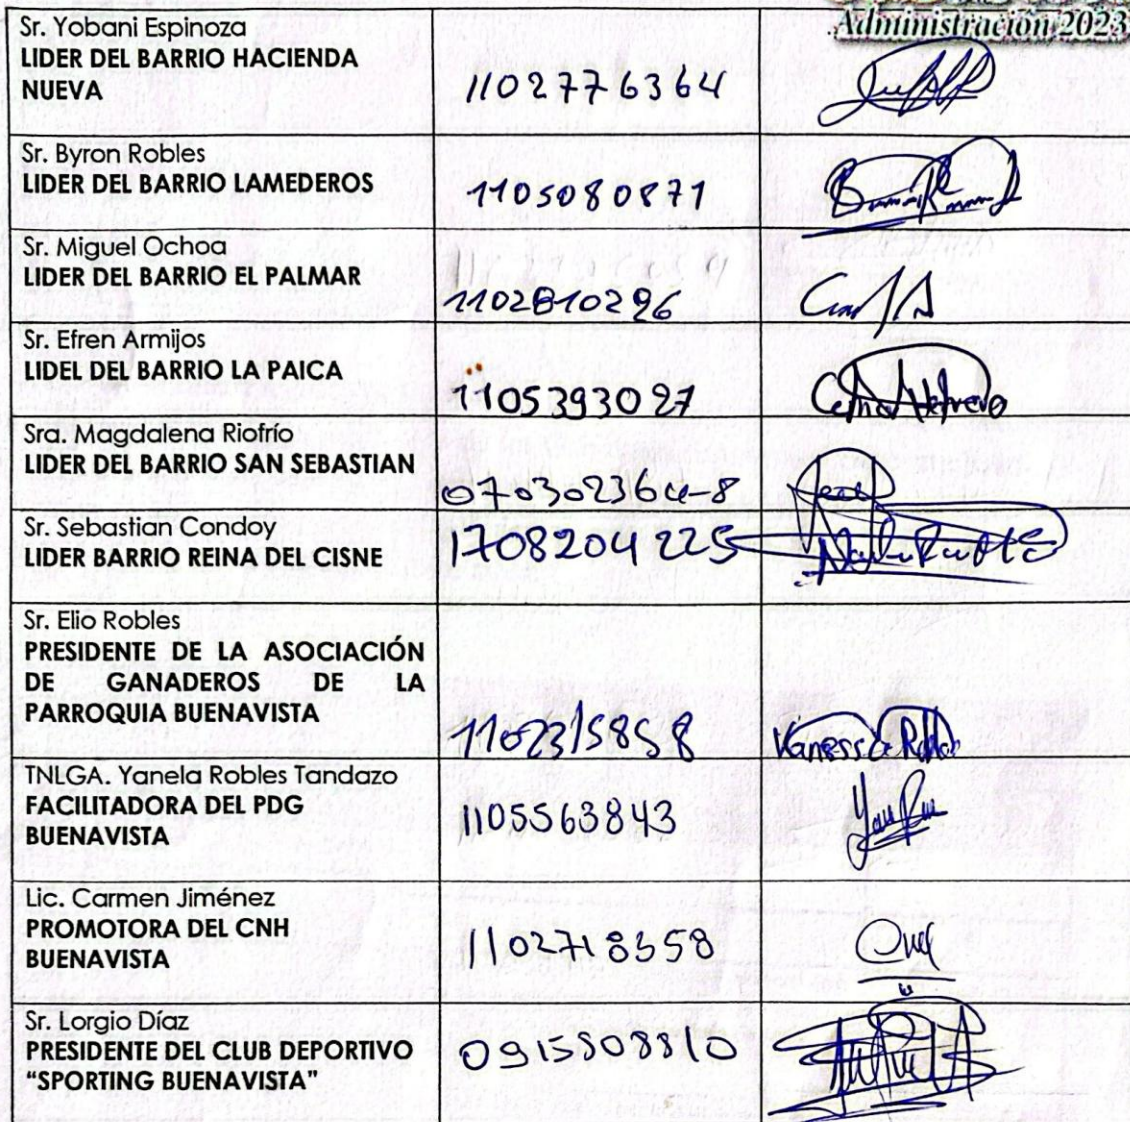 Administración 2023
Sr. Yobani Espinoza
LIDER DEL BARRIO HACIENDA
NUEVA
1102776364
Sr. Byron Robles
LIDER DEL BARRIO LAMEDEROS
1105080871
Sr. Miguel Ochoa
LIDER DEL BARRIO EL PALMAR
1102810296
Sr. Efren Armijos
LIDEL DEL BARRIO LA PAICA
1105393027
Sra. Magdalena Riofrío
LIDER DEL BARRIO SAN SEBASTIAN
070302364-8
Sr. Sebastian Condoy
LIDER BARRIO REINA DEL CISNE
1708204225
Sr. Elio Robles
PRESIDENTE DE LA ASOCIACIÓN
DE GANADEROS DE LA
PARROQUIA BUENAVISTA
1102315858
TNLGA. Yanela Robles Tandazo
FACILITADORA DEL PDG
BUENAVISTA
1105563843
Lic. Carmen Jiménez
PROMOTORA DEL CNH
BUENAVISTA
1102718358
Sr. Lorgio Díaz
PRESIDENTE DEL CLUB DEPORTIVO
“SPORTING BUENAVISTA”
0915808810